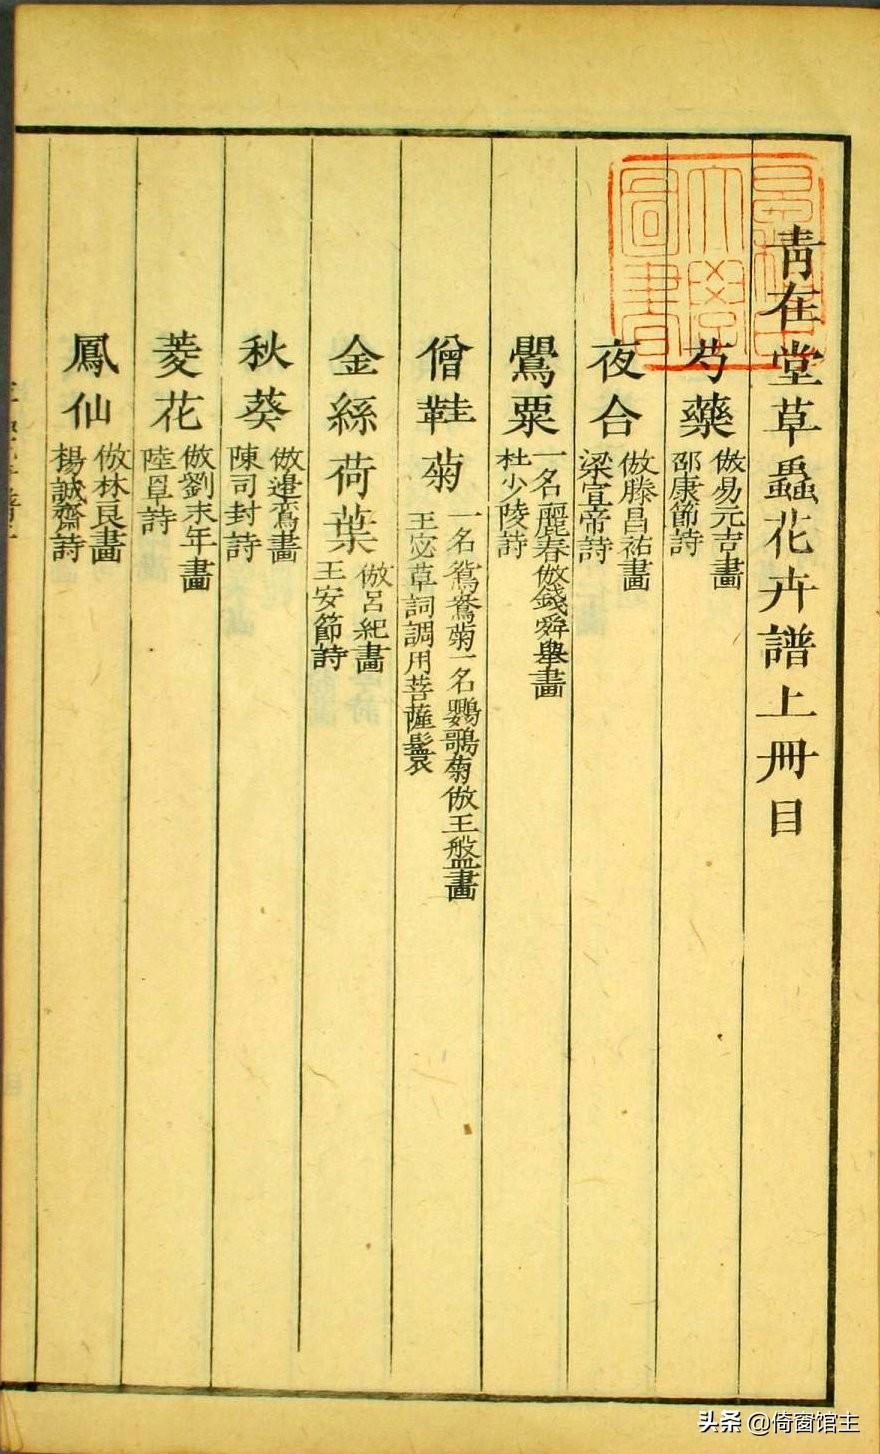 靑在堂草蟲花卉譜上冊目
芍藥
倣易元吉畫
邵康節詩
夜合
倣滕昌祐畫
梁宣帝詩
鸎粟
一名麗春倣錢舜舉畫
杜少陵詩
僧鞋菊
一名鴛鴦菊一名鸚鵡菊倣王盤畫
王宓草詞調用菩薩鬟
金絲荷葉
倣呂紀畫
王安節詩
秋葵
倣邊鸞畫
陳司封詩
菱花
倣劉末年畫
陸阜詩
鳳仙
倣林良畫
楊誠齋詩
头条 @倚窗馆主